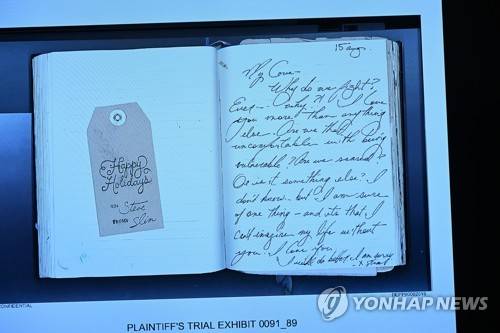 Happy
Holidays
TO: Steve
FROM: Slim
15 aug.
My Love
Why do we fight?
Ever - why? I love
you more than anything
else. Are we that
uncomfortable with being
vulnerable? Are we scared?
Or is it something else? I
don't know but I am sure
of one thing - and its that I
can't imagine my life without
you. I love you.
I will do better I am sorry
CONFIDENTIAL
PLAINTIFF'S TRIAL EXHIBIT 0091_89
YONHAP NEWS